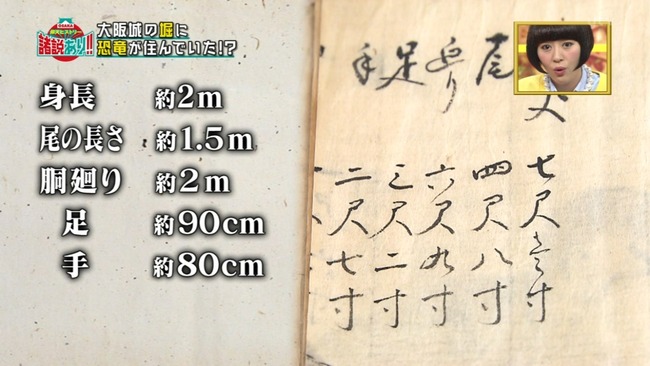 諸説あり!!
大阪城の堀に
恐竜が住んでいた!?
身長 約2m
尾の長さ 約1.5m
胴廻り 約2m
足 約90cm
手 約80cm
尾 四尺八寸
廻り 六尺九寸
足 三尺二寸
手 二尺七寸